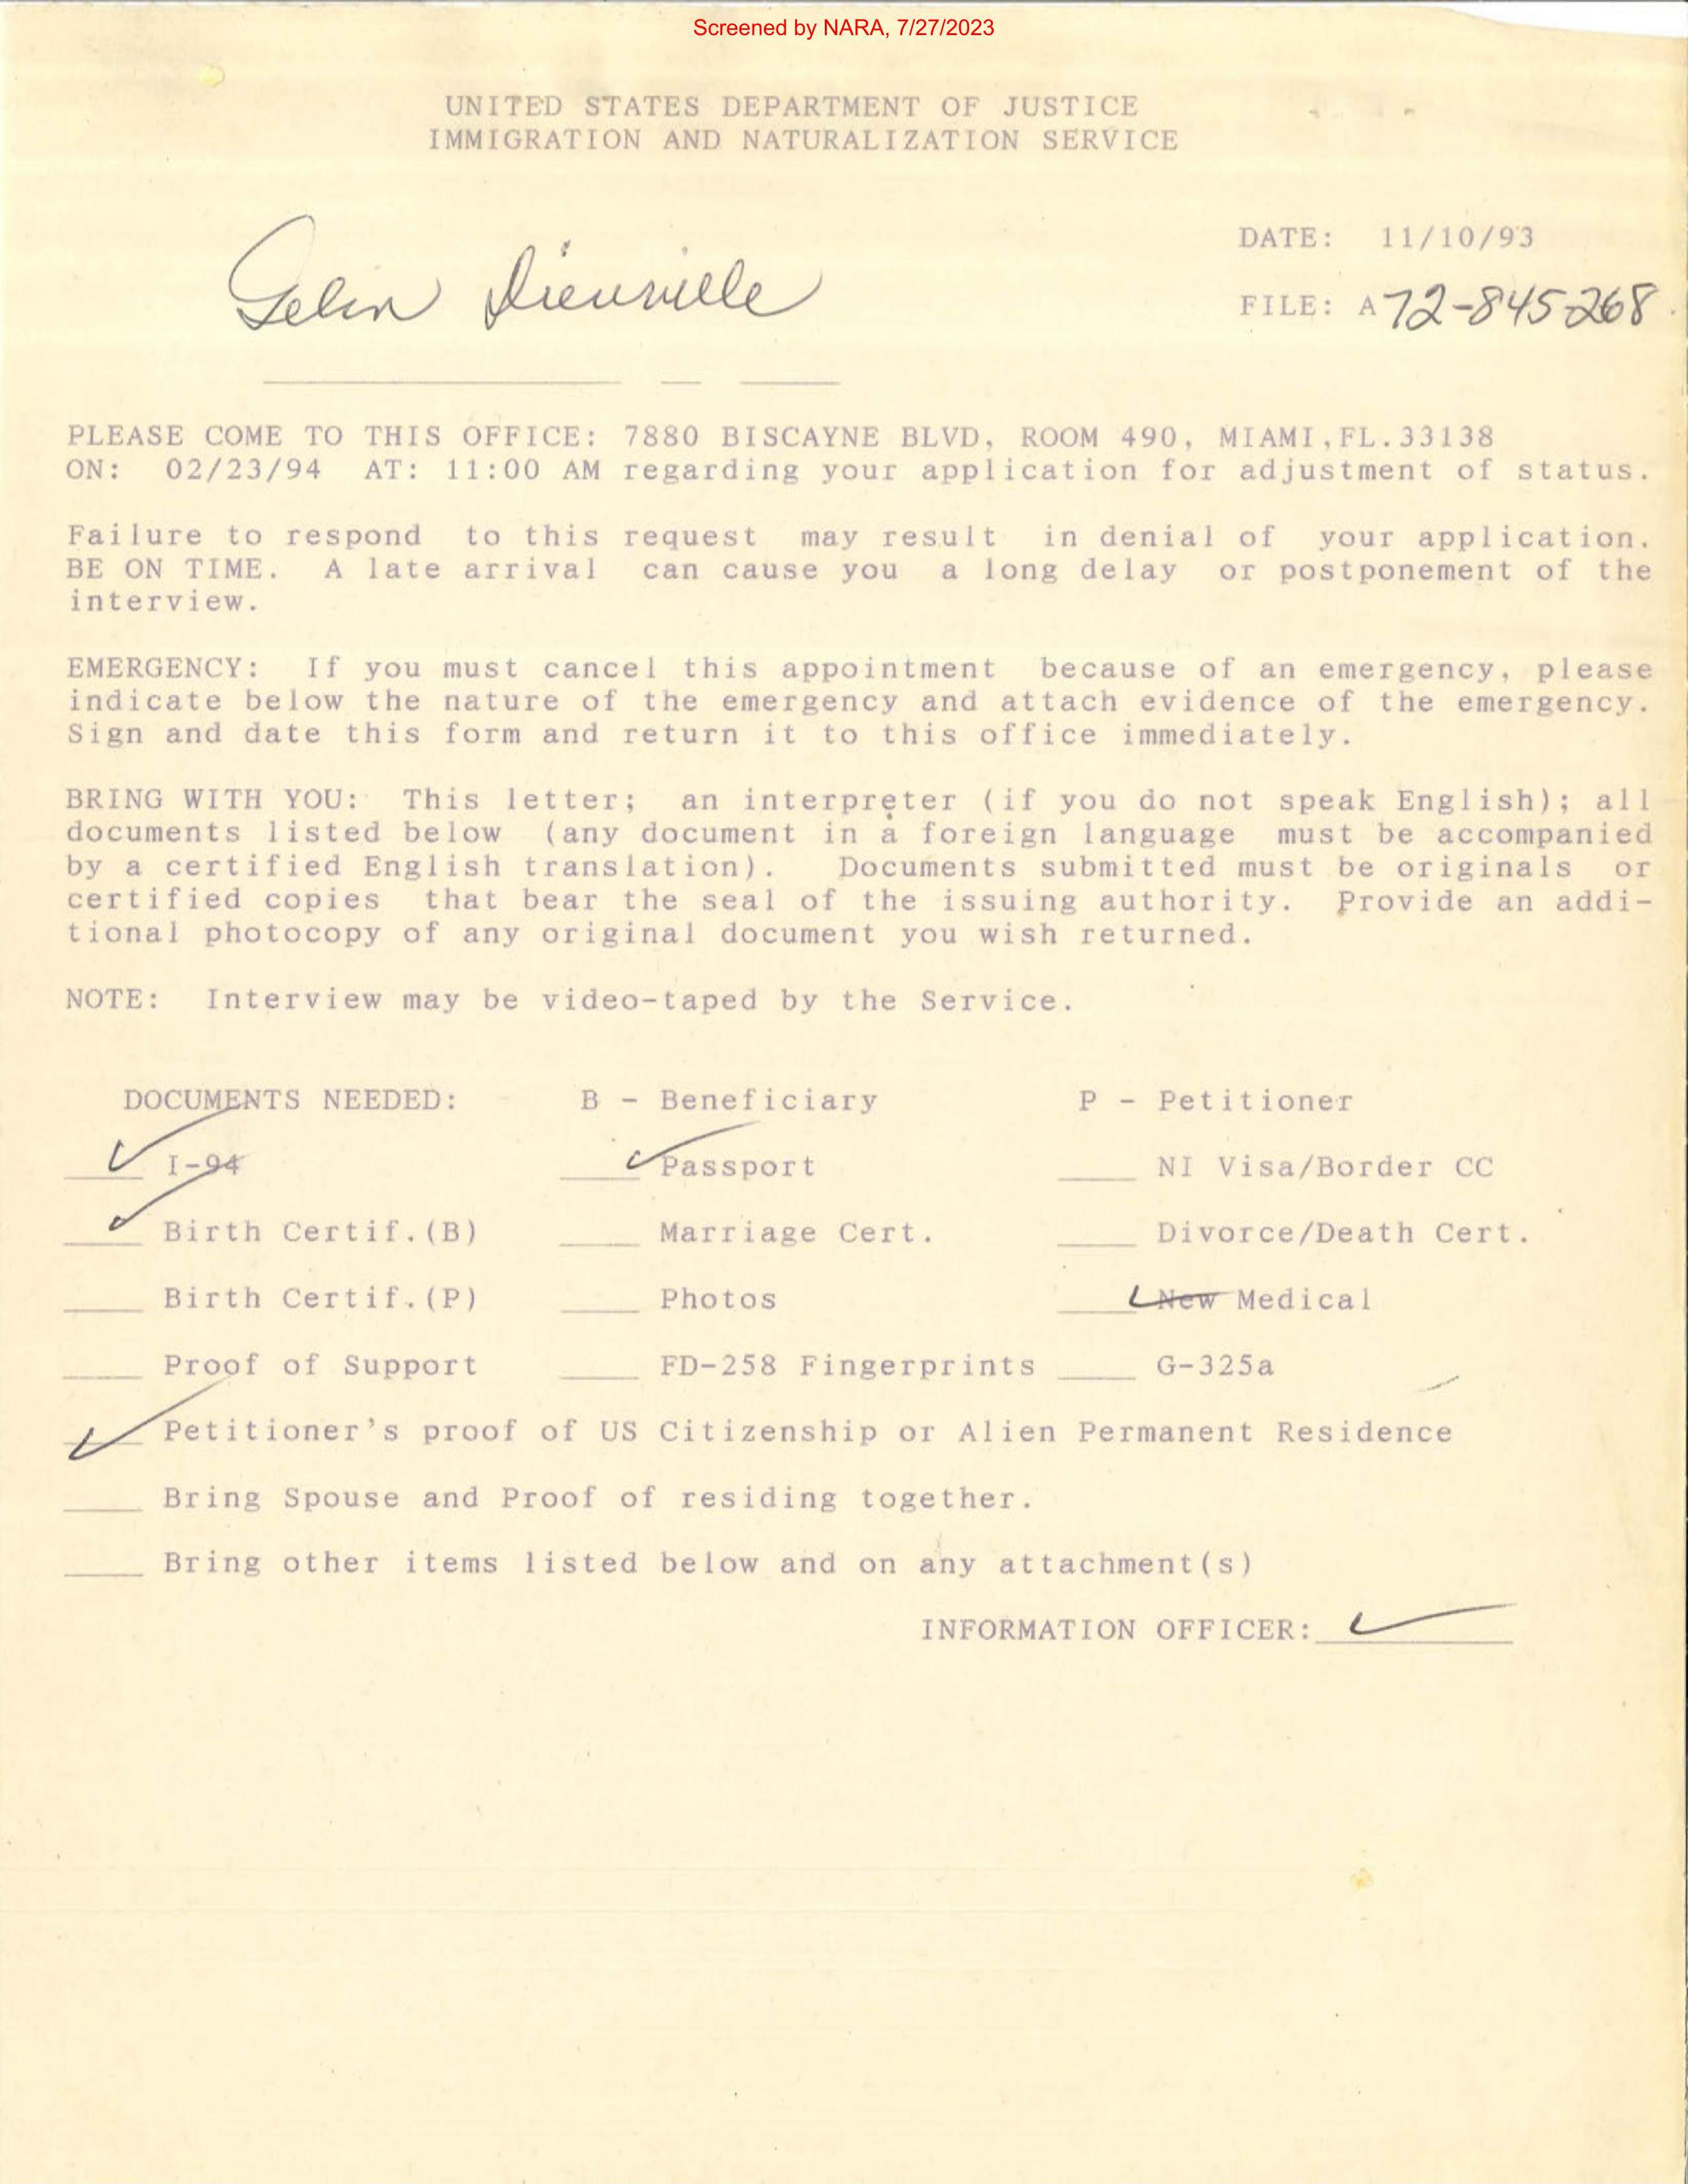 Screened by NARA, 7/27/2023
UNITED STATES DEPARTMENT OF JUSTICE
IMMIGRATION AND NATURALIZATION SERVICE
DATE: 11/10/93
Gelin Dieuville
FILE: A72-845-268
PLEASE COME TO THIS OFFICE: 7880 BISCAYNE BLVD, ROOM 490, MIAMI,FL.33138
ON: 02/23/94 AT: 11:00 AM regarding your application for adjustment of status.
Failure to respond to this request may result in denial of your application.
BE ON TIME. A late arrival can cause you a long delay or postponement of the
interview.
EMERGENCY: If you must cancel this appointment because of an emergency, please
indicate below the nature of the emergency and attach evidence of the emergency.
Sign and date this form and return it to this office immediately.
BRING WITH YOU: This letter; an interpreter (if you do not speak English); all
documents listed below (any document in a foreign language must be accompanied
by a certified English translation). Documents submitted must be originals or
certified copies that bear the seal of the issuing authority. Provide an addi-
tional photocopy of any original document you wish returned.
NOTE: Interview may be video-taped by the Service.
DOCUMENTS NEEDED: B - Beneficiary P - Petitioner
✓ I-94 ✓ Passport ____ NI Visa/Border CC
✓ Birth Certif.(B) ____ Marriage Cert. ____ Divorce/Death Cert.
____ Birth Certif.(P) ____ Photos ✓ New Medical
____ Proof of Support ____ FD-258 Fingerprints ____ G-325a
✓ Petitioner's proof of US Citizenship or Alien Permanent Residence
____ Bring Spouse and Proof of residing together.
____ Bring other items listed below and on any attachment(s)
INFORMATION OFFICER: ✓